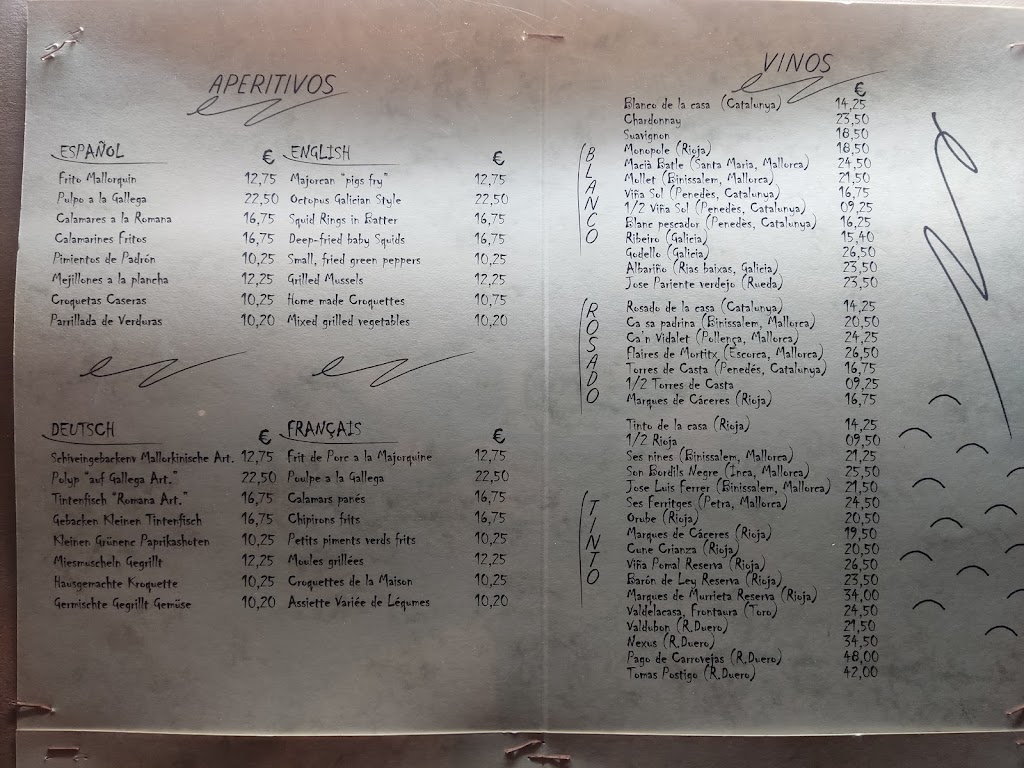 APERITIVOS
ESPAÑOL €
Frito Mallorquin 12,75
Pulpo a la Gallega 22,50
Calamares a la Romana 16,75
Calamarines Fritos 16,75
Pimientos de Padrón 10,25
Mejillones a la plancha 12,25
Croquetas Caseras 10,25
Parrillada de Verduras 10,20
ENGLISH €
Majorcan "pigs fry" 12,75
Octopus Galician Style 22,50
Squid Rings in Batter 16,75
Deep-fried baby Squids 16,75
Small, fried green peppers 10,25
Grilled Mussels 12,25
Home made Croquettes 10,75
Mixed grilled vegetables 10,20
DEUTSCH €
Schiveingebackenv Mallorkinische Art. 12,75
Polyp "auf Gallega Art." 22,50
Tintenfisch "Romana Art." 16,75
Gebacken Kleinen Tintenfisch 16,75
Kleinen Grünenc Paprikashoten 10,25
Miesmuscheln Gegrillt 12,25
Hausgemachte Kroquette 10,25
Germischte Gegrillt Gemüse 10,20
FRANÇAIS €
Frit de Porc a la Majorquine 12,75
Poulpe a la Gallega 22,50
Calamars panés 16,75
Chipirons frits 16,75
Petits piments verds frits 10,25
Moules grillées 12,25
Croquettes de la Maison 10,25
Assiette Variée de Légumes 10,20
VINOS
€
BLANCO
Blanco de la casa (Catalunya) 14,25
Chardonnay 23,50
Suavignon 18,50
Monopole (Rioja) 18,50
Macià Batle (Santa Maria, Mallorca) 24,50
Mollet (Binissalem, Mallorca) 21,50
Viña Sol (Penedès, Catalunya) 16,75
1/2 Viña Sol (Penedès, Catalunya) 09,25
Blanc pescador (Penedès, Catalunya) 16,25
Ribeiro (Galicia) 15,40
Godello (Galicia) 26,50
Albariño (Rias baixas, Galicia) 23,50
Jose Pariente verdejo (Rueda) 23,50
ROSADO
Rosado de la casa (Catalunya) 14,25
Ca sa padrina (Binissalem, Mallorca) 20,50
Ca'n Vidalet (Pollença, Mallorca) 24,25
Flaires de Mortitx (Escorca, Mallorca) 26,50
Torres de Casta (Penedés, Catalunya) 16,75
1/2 Torres de Casta 09,25
Marques de Cáceres (Rioja) 16,75
TINTO
Tinto de la casa (Rioja) 14,25
1/2 Rioja 09,50
Ses nines (Binissalem, Mallorca) 21,25
Son Bordils Negre (Inca, Mallorca) 25,50
Jose Luis Ferrer (Binissalem, Mallorca) 21,50
Ses Ferritges (Petra, Mallorca) 24,50
Orube (Rioja) 20,50
Marques de Cáceres (Rioja) 19,50
Cune Crianza (Rioja) 20,50
Viña Pomal Reserva (Rioja) 26,50
Barón de Ley Reserva (Rioja) 23,50
Marques de Murrieta Reserva (Rioja) 34,00
Valdelacasa, Frontaura (Toro) 24,50
Valdubon (R.Duero) 21,50
Nexus (R.Duero) 34,50
Pago de Carrovejas (R.Duero) 48,00
Tomas Postigo (R.Duero) 42,00